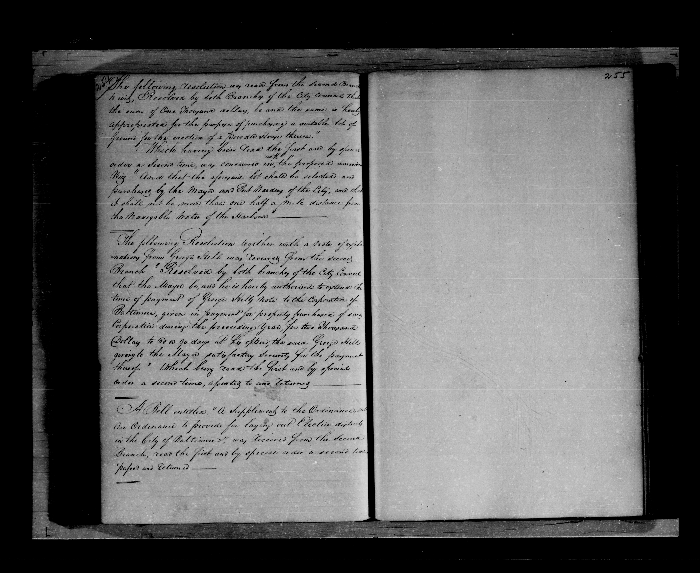 The following resolution was read from the Second Branch
to wit, Resolved by both Branches of the City Council that
the sum of One Thousand dollars, be and the same is hereby
appropriated for the purpose of purchasing a suitable lot of
ground for the erection of a Powder House thereon."
Which having been read the first and by special
order a second time, was concurred in, the proposed
Viz "And that the aforesaid lot shall be selected and
purchased by the Mayor and Port Wardens of the City, and that
it shall not be more than one half a mile distance from
the Navigable Water of the Harbour"
The following Resolution together with a
from George Hills was received from the second
Branch "Resolved by both branches of the City Council
that the Mayor be, and he is hereby authorised to extend the
time of payment of George Hills Note to the Corporation of
Baltimore, given in payment for property purchased of said
Corporation during the preceeding Year, for two Thousand
Dollars, to 60 or 90 days at his option, the said George Hills
giving to the Mayor satisfactory Security for the payment
thereof." Which being read the first and by special
order a second time, assented to and returned
A Bill entitled "A Supplement to the Ordinance
An Ordinance to provide for laying out Election districts
in the City of Baltimore &c, was received from the Second
Branch, read the first and by special order a second time
passed and returned
255